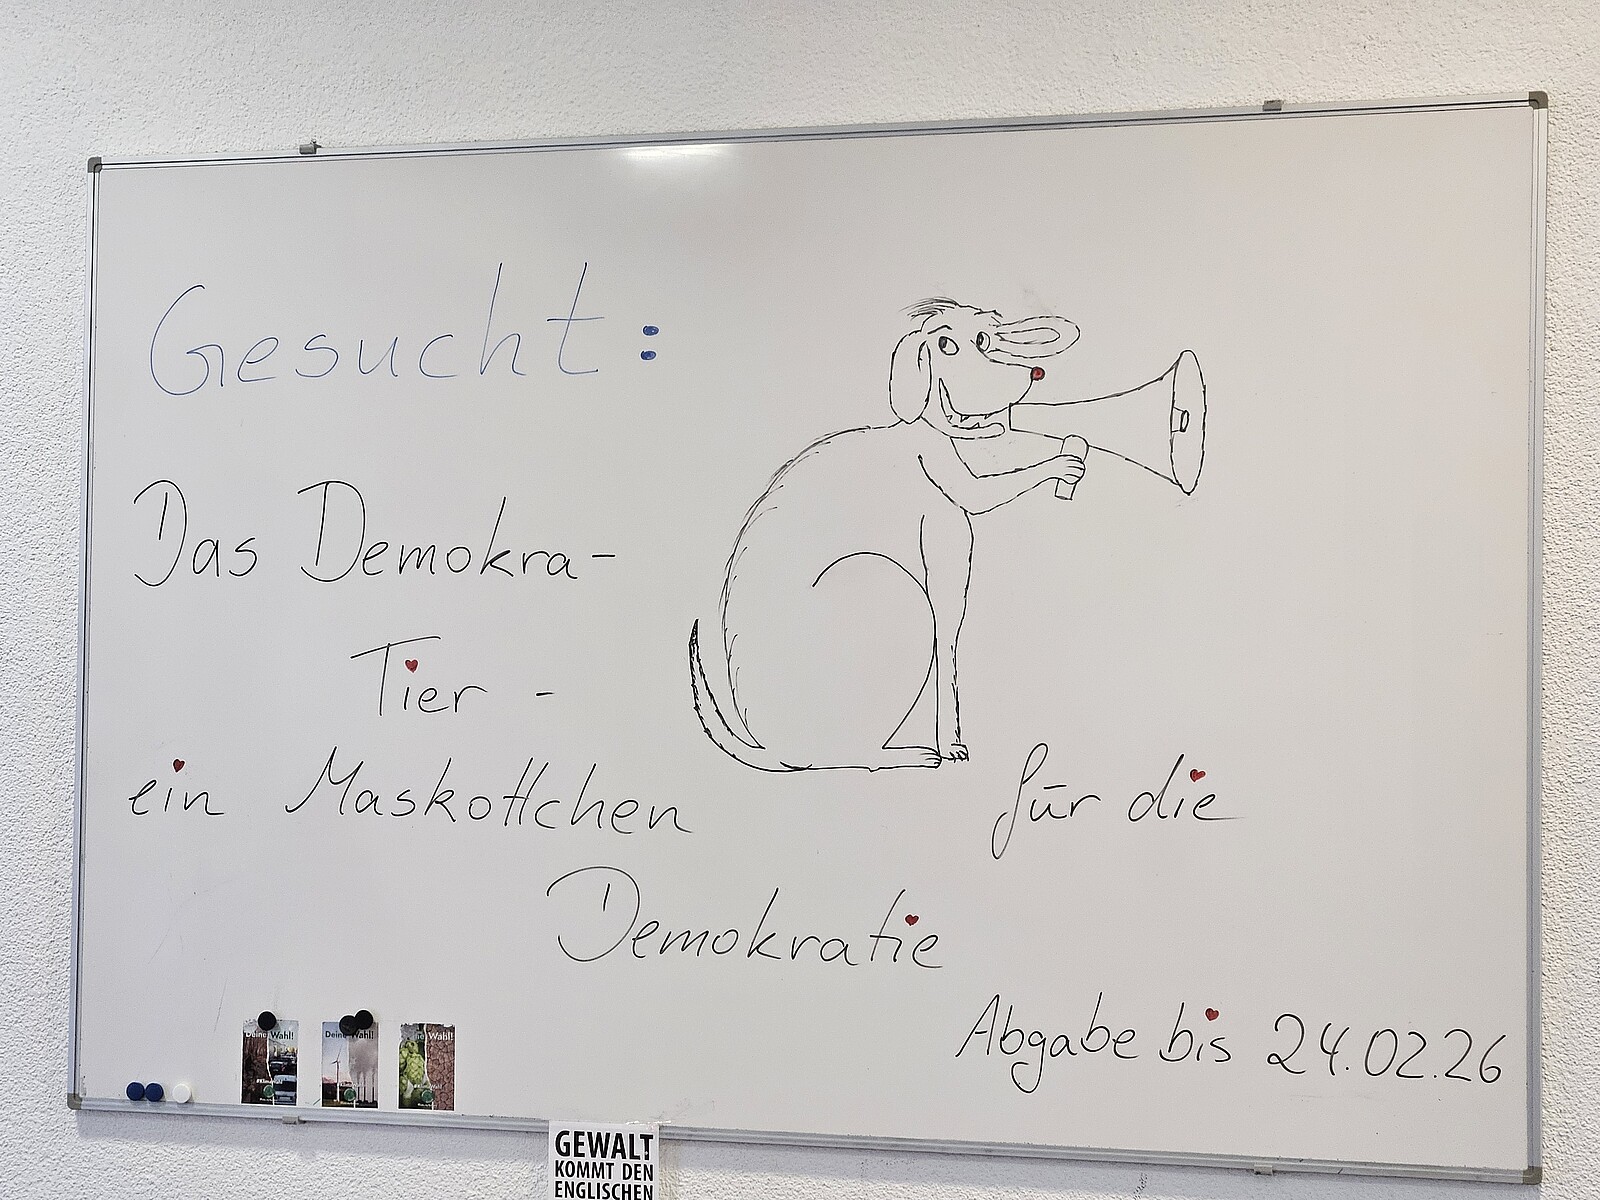 Gesucht:
Das Demokra-
Tier -
ein Maskottchen für die
Demokratie
Abgabe bis 24.02.26
Deine Wahl!
Deine Wahl!
Wahl!
GEWALT
KOMMT DEN
ENGLISCHEN